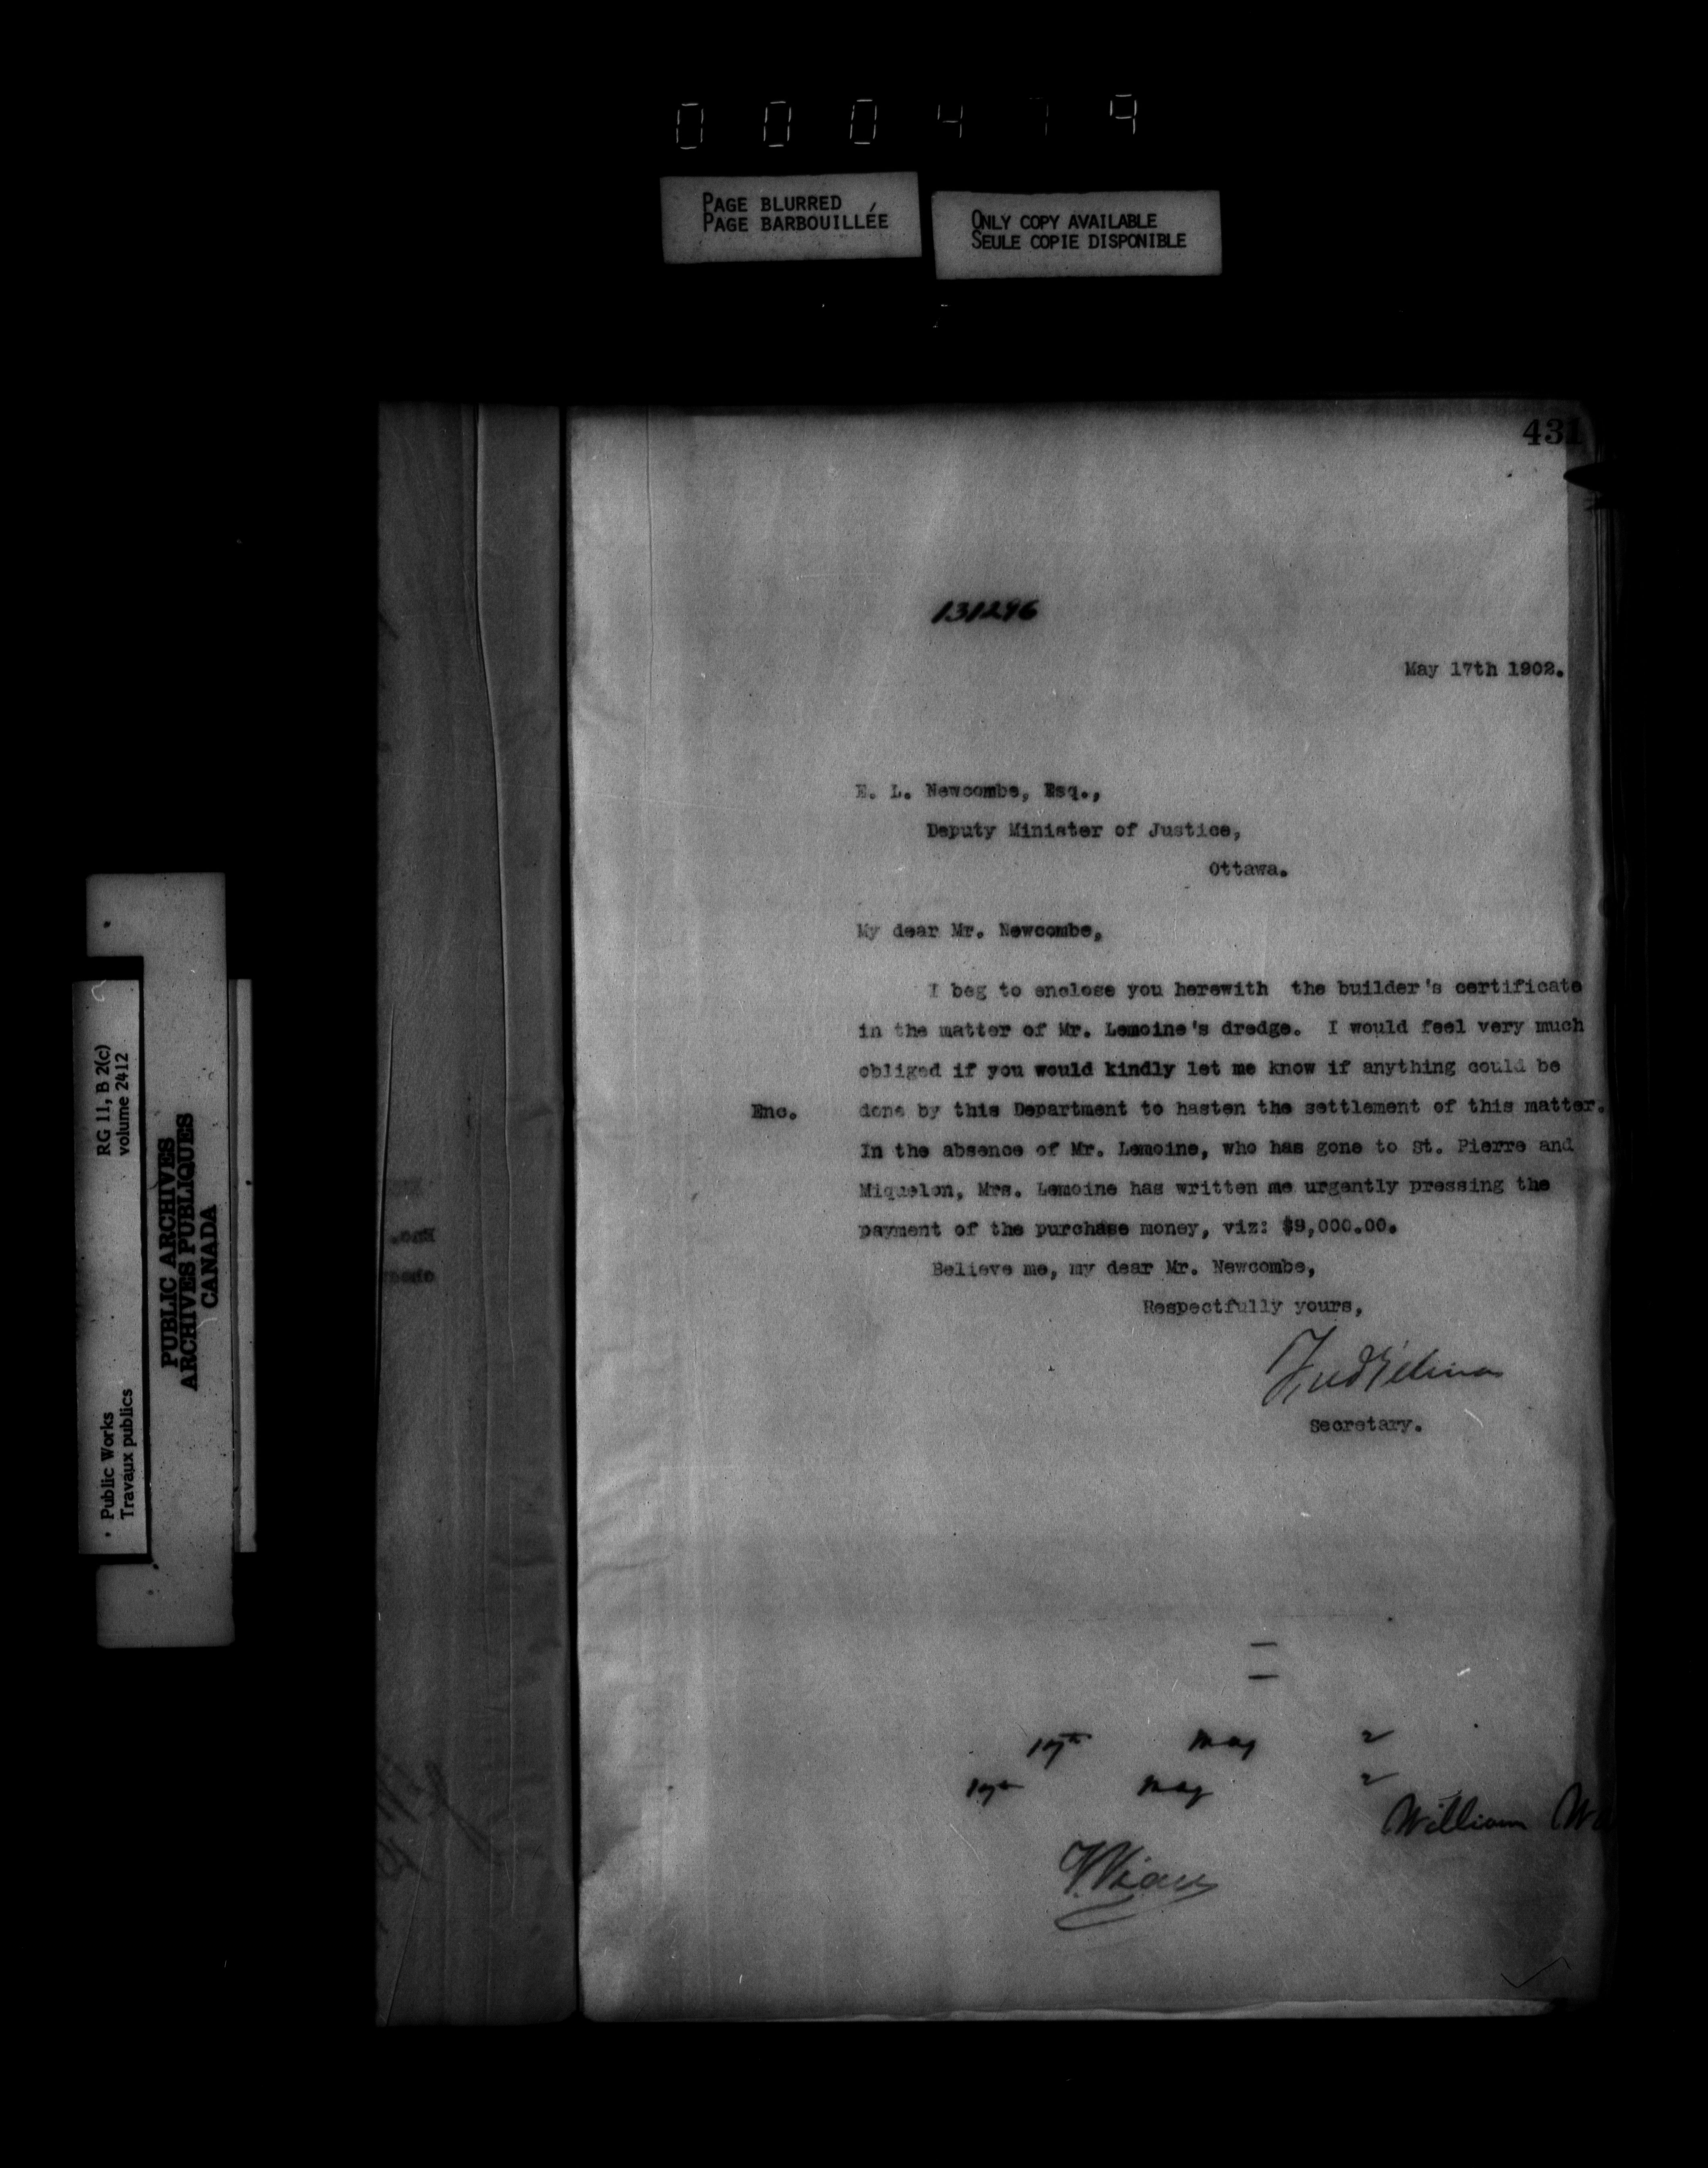 000479
PAGE BLURRED
PAGE BARBOUILLÉE
ONLY COPY AVAILABLE
SEULE COPIE DISPONIBLE
431
131296
May 17th 1902.
E. L. Newcombe, Esq.,
Deputy Minister of Justice,
Ottawa.
My dear Mr. Newcombe,
I beg to enclose you herewith the builder's certificate
in the matter of Mr. Lemoine's dredge. I would feel very much
obliged if you would kindly let me know if anything could be
Enc. done by this Department to hasten the settlement of this matter.
In the absence of Mr. Lemoine, who has gone to St. Pierre and
Miquelon, Mrs. Lemoine has written me urgently pressing the
payment of the purchase money, viz: $9,000.00.
Believe me, my dear Mr. Newcombe,
Respectfully yours,
Fred Gélinas
Secretary.
17th May 2
17th May 2
William
RG 11, B 2(c)
volume 2412
PUBLIC ARCHIVES
ARCHIVES PUBLIQUES
CANADA
Public Works
Travaux publics